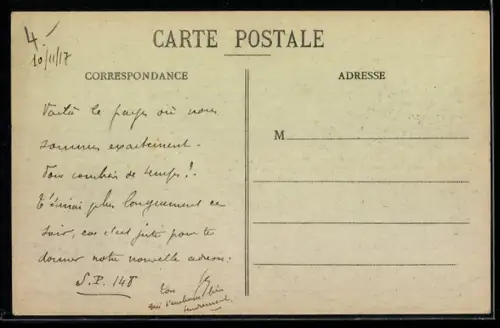 4
10/11/17
CARTE POSTALE
CORRESPONDANCE
ADRESSE
M
Voilà le pays où nous
sommes exactement.
Pour combien de temps!.
T'écrirai plus longuement ce
soir, car c'est juste pour te
donner notre nouvelle adresse.
S.P. 148
Ton
qui t'embrasse bien
tendrement